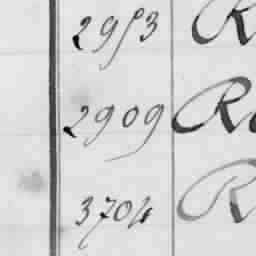 2953 R
2909 R
3704 R